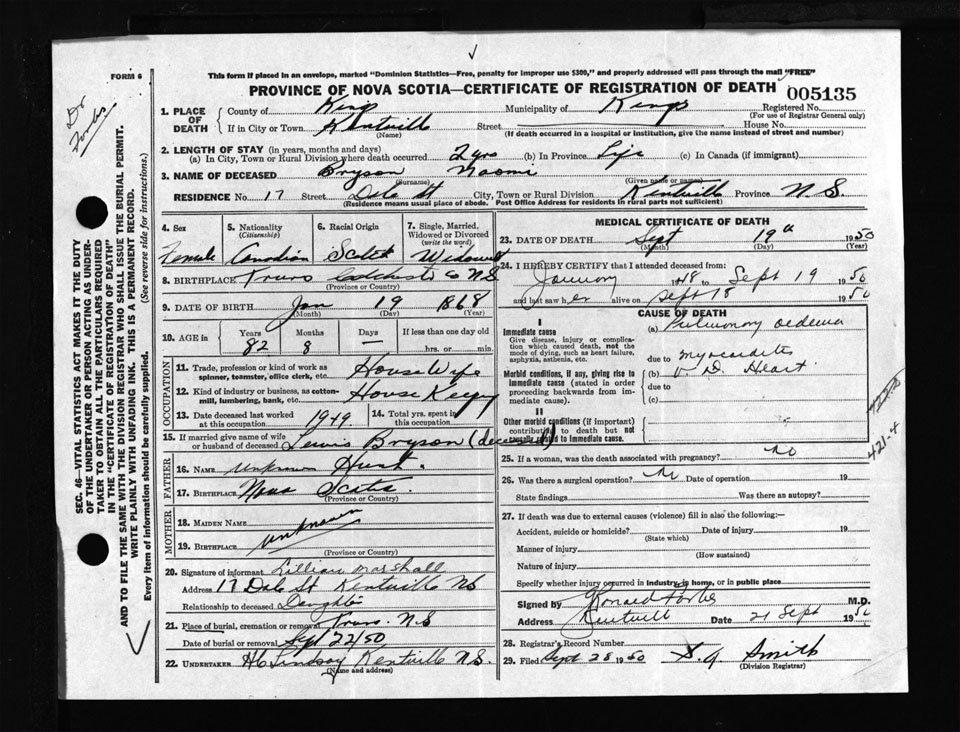 FORM 6
This form if placed in an envelope, marked "Dominion Statistics—Free, penalty for improper use $300," and properly addressed will pass through the mail "FREE"
PROVINCE OF NOVA SCOTIA—CERTIFICATE OF REGISTRATION OF DEATH 005135
Dr Forbes
1. PLACE OF DEATH County of Kings Municipality of Kings Registered No.
(For use of Registrar General only)
If in City or Town Kentville Street House No.
(Name) (If death occurred in a hospital or institution, give the name instead of street and number)
2. LENGTH OF STAY (in years, months and days)
(a) In City, Town or Rural Division where death occurred 2 yrs (b) In Province Life (c) In Canada (if immigrant)
3. NAME OF DECEASED Bryson Naomi
(Surname) (Given name or names)
RESIDENCE No. 17 Street Dale St City, Town or Rural Division Kentville Province N.S
(Residence means usual place of abode. Post Office Address for residents in rural parts not sufficient)
4. Sex 5. Nationality (Citizenship) 6. Racial Origin 7. Single, Married, Widowed or Divorced (write the word)
Female Canadian Scotch Widowed
8. BIRTHPLACE Truro Colchester Co N.S
(Province or Country)
9. DATE OF BIRTH Jan 19 1868
(Month) (Day) (Year)
10. AGE Years Months Days If less than one day old
82 8 — hrs. or min.
OCCUPATION
11. Trade, profession or kind of work as spinner, teamster, office clerk, etc. House Wife
12. Kind of industry or business, as cotton-mill, lumbering, bank, etc. House Keeping
13. Date deceased last worked at this occupation 1949 14. Total yrs. spent in this occupation
15. If married give name of wife or husband of deceased Lewis Bryson (deceased)
FATHER
16. NAME Unknown Hunt.
17. BIRTHPLACE Nova Scotia
(Province or Country)
MOTHER
18. MAIDEN NAME
19. BIRTHPLACE unknown
(Province or Country)
20. Signature of informant Lillian Marshall
Address 17 Dale St Kentville NS
Relationship to deceased Daughter
21. Place of burial, cremation or removal Truro. N.S
Date of burial or removal Sept 22/50
22. UNDERTAKER H C Lindsay Kentville N.S.
(Name and address)
MEDICAL CERTIFICATE OF DEATH
23. DATE OF DEATH Sept 19th 1950
(Month) (Day) (Year)
24. I HEREBY CERTIFY that I attended deceased from:
January 1948 to Sept 19 1950
and last saw her alive on Sept 18 1950
CAUSE OF DEATH
I
Immediate cause
Give disease, injury or complication which caused death, not the mode of dying, such as heart failure, asphyxia, asthenia, etc.
(a) Pulmonary oedema
due to myocarditis
Morbid conditions, if any, giving rise to immediate cause (stated in order proceeding backwards from immediate cause).
(b) V. D. Heart
due to
(c)
II
Other morbid conditions (if important) contributing to death but not causally related to immediate cause.
421-4
25. If a woman, was the death associated with pregnancy? no
26. Was there a surgical operation? no Date of operation 19
State findings Was there an autopsy?
27. If death was due to external causes (violence) fill in also the following:—
Accident, suicide or homicide? Date of injury 19
(State which)
Manner of injury
(How sustained)
Nature of injury
Specify whether injury occurred in industry, in home, or in public place
Signed by Ronald Forbes M.D.
Address Kentville Date 21 Sept 1950
28. Registrar's Record Number
29. Filed Sept 28 1950 S. G. Smith
(Division Registrar)
SEC. 46—VITAL STATISTICS ACT MAKES IT THE DUTY
OF THE UNDERTAKER OR PERSON ACTING AS UNDER-
TAKER TO OBTAIN ALL THE PARTICULARS REQUIRED
IN THE "CERTIFICATE OF REGISTRATION OF DEATH"
AND TO FILE THE SAME WITH THE DIVISION REGISTRAR WHO SHALL ISSUE THE BURIAL PERMIT.
WRITE PLAINLY WITH UNFADING INK. THIS IS A PERMANENT RECORD.
Every item of information should be carefully supplied. (See reverse side for instructions.)